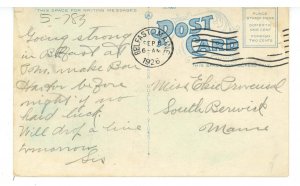 THIS SPACE FOR WRITING MESSAGES
5-783
Going strong
in Belfast at
7am, make Bar
Harbor before
night if no
hard luck.
Will drop a line
tomorrow
Sis
POST
CARD
BELFAST
SEP 8
6-AM
1926
PLACE
STAMP HERE
DOMESTIC
ONE CENT
FOREIGN
TWO CENTS
Miss Elsie Provencal
South Berwick
Maine